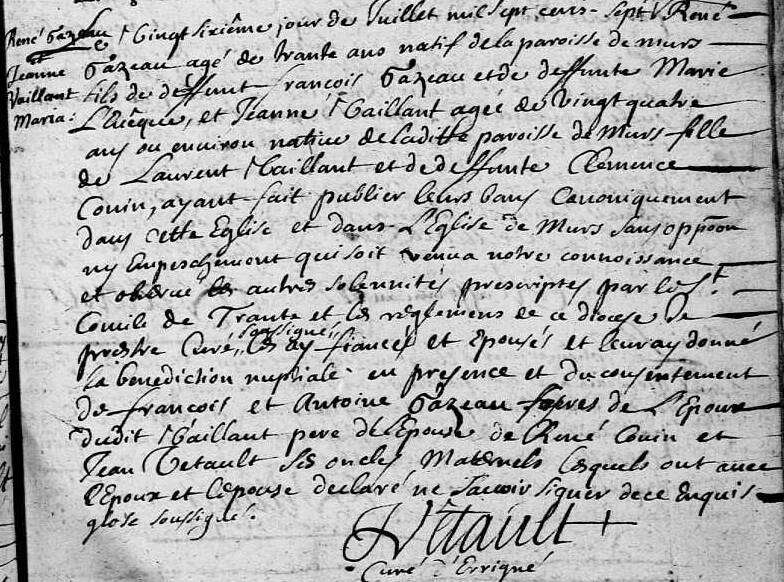 René Gazeau
et
Jeanne
Vaillant
Maria:
Le Vingt sixième jour de Juillet mil sept cens sept René
Gazeau agé de trante ans natif de la paroisse de murs
fils de deffunt françois Gazeau et de deffunte Marie
L'Evêque, et Jeanne Vaillant agée de Vingt quatre
ans ou environ native de laditte paroisse de Murs fille
de Laurent Vaillant et de deffunte Clemence
Couin, ayant fait publier leurs bans Canoniquement
dans cette Eglise et dans L'Eglise de Murs sans oppoon
ny Empeschement qui soit venu a notre connoissance
et observé les autres solennités prescriptes par le St
Concile de Trante et les règlemens de ce diocese Je
prestre Curé, soussigné, les ay fiancés et Epousés et leur ay donné
la benediction nuptiale en presence et du consentement
de françois et Antoine Gazeau freres de L'Epoux
dudit Vaillant pere de l'Epouse de René Couin et
Jean Vetault ses oncles Maternels lesquels ont avec
l'Epoux et l'epouse declaré ne savoir signer de ce Enquis
glose soussigné.
JVétault
Curé d'Errigné